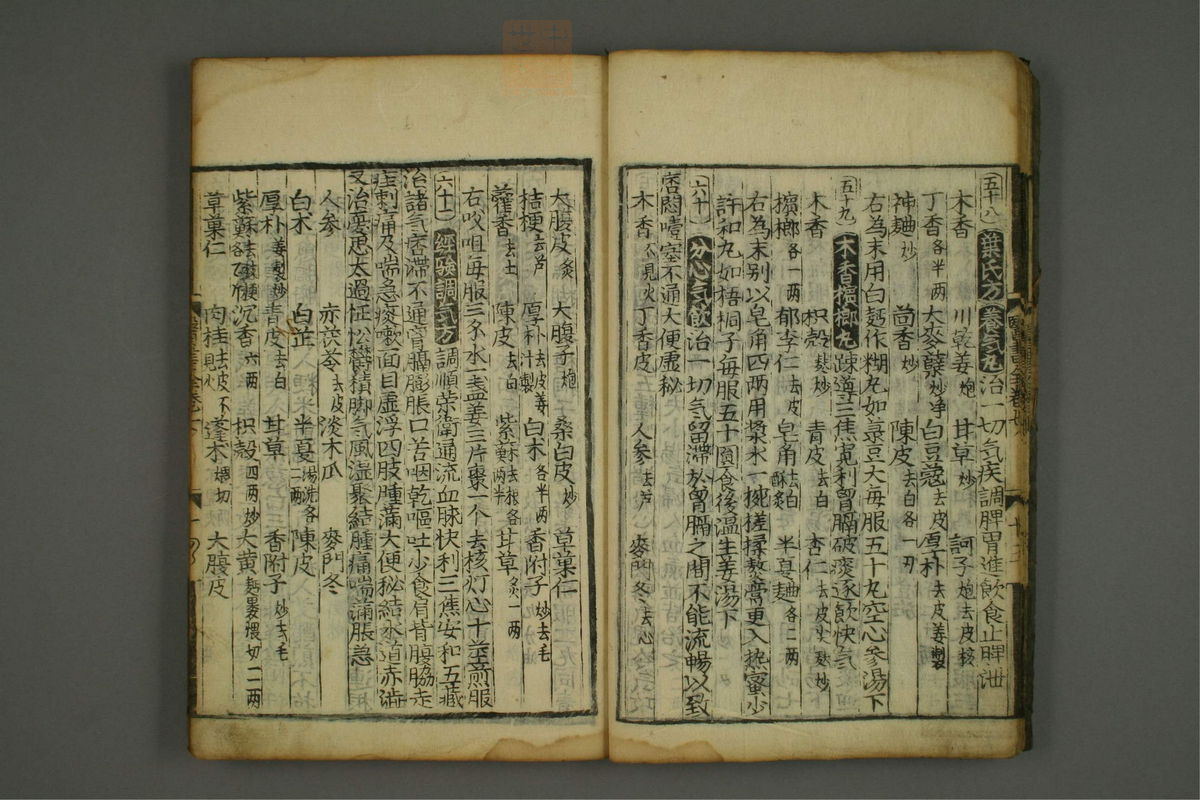 五十八 葉氏方 養气丸 治一切气疾調脾胃進飲食止脾泄
木香 川乾姜炮 甘草 訶子炮去皮核
丁香各半两 大麥蘖炒净 白豆蔻去皮 厚朴去皮姜製
神麯炒 茴香炒 陳皮去白各一刃
右為末用白麪作糊丸如菉豆大每服五十丸空心參湯下
五十九 木香檳榔丸 踈導三焦寛利胷膈破痰逐飲快气
木香 枳殻麸炒 青皮去白 杏仁去皮尖麸炒
檳榔各一两 郁李仁去皮 皂角去白酥炙 半夏麯各二两
右為末别以皂角四两用漿水一椀搓揉熬膏更入热蜜少
許和丸如梧桐子每服五十圎食後温生姜湯下
六十 分心气飲 治一切气留滞於胷膈之間不能流暢以致
痞悶噎塞不通大便虚秘
木香不見火 丁香皮 人参去芦 麥門冬去心
大腹皮炙 大腹子炮 桑白皮炒 草菓仁
桔梗去芦 厚朴去皮姜汁製 白术各半两 香附子炒去毛
藿香去土 陳皮去白 紫蘓去根各一两半 甘草炙一两
右㕮咀每服三戔水一盏姜三片棗一个去核灯心十莖煎服
六十一 經驗調气方 調順荣衛通流血脉快利三焦安和五藏
治諸气密滞不通胷膈膨脹口苦咽乾嘔吐少食肩背腹脇走
疰刺痛及喘急痰嗽面目虚浮四肢腫滿大便秘結水道赤澁
又治憂思太過怔忪欝積脚气風湿聚結腫痛喘滿脹急
人參 赤茯苓去皮 淡木瓜 麥門冬
白术 白芷 半夏湯洗各一两 陳皮
厚朴姜製炒 青皮去白 甘草 香附子炒去毛
紫蘓去皷梗各 沉香六两 枳殻四两炒 大黄麪褁煨切二两
草菓仁 肉桂去皮不見火 蓬术煨切 大腹皮